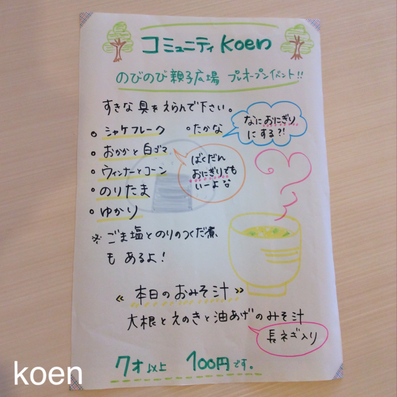 コミュニティ Koen
のびのび親子広場 プレオープンイベント!!
すきな具をえらんで下さい。
・シャケフレーク ・たかな
なにおにぎりにする?!
・おかかと白ゴマ
・ウィンナーとコーン
ばくだん
おにぎりでも
いーよな
・のりたま
・ゆかり
※ごま塩とのりのつくだ煮
も あるよ!
≪本日のおみそ汁≫
大根とえのきと油あげのみそ汁
長ネギ入り
7才以上 100円です。
koen